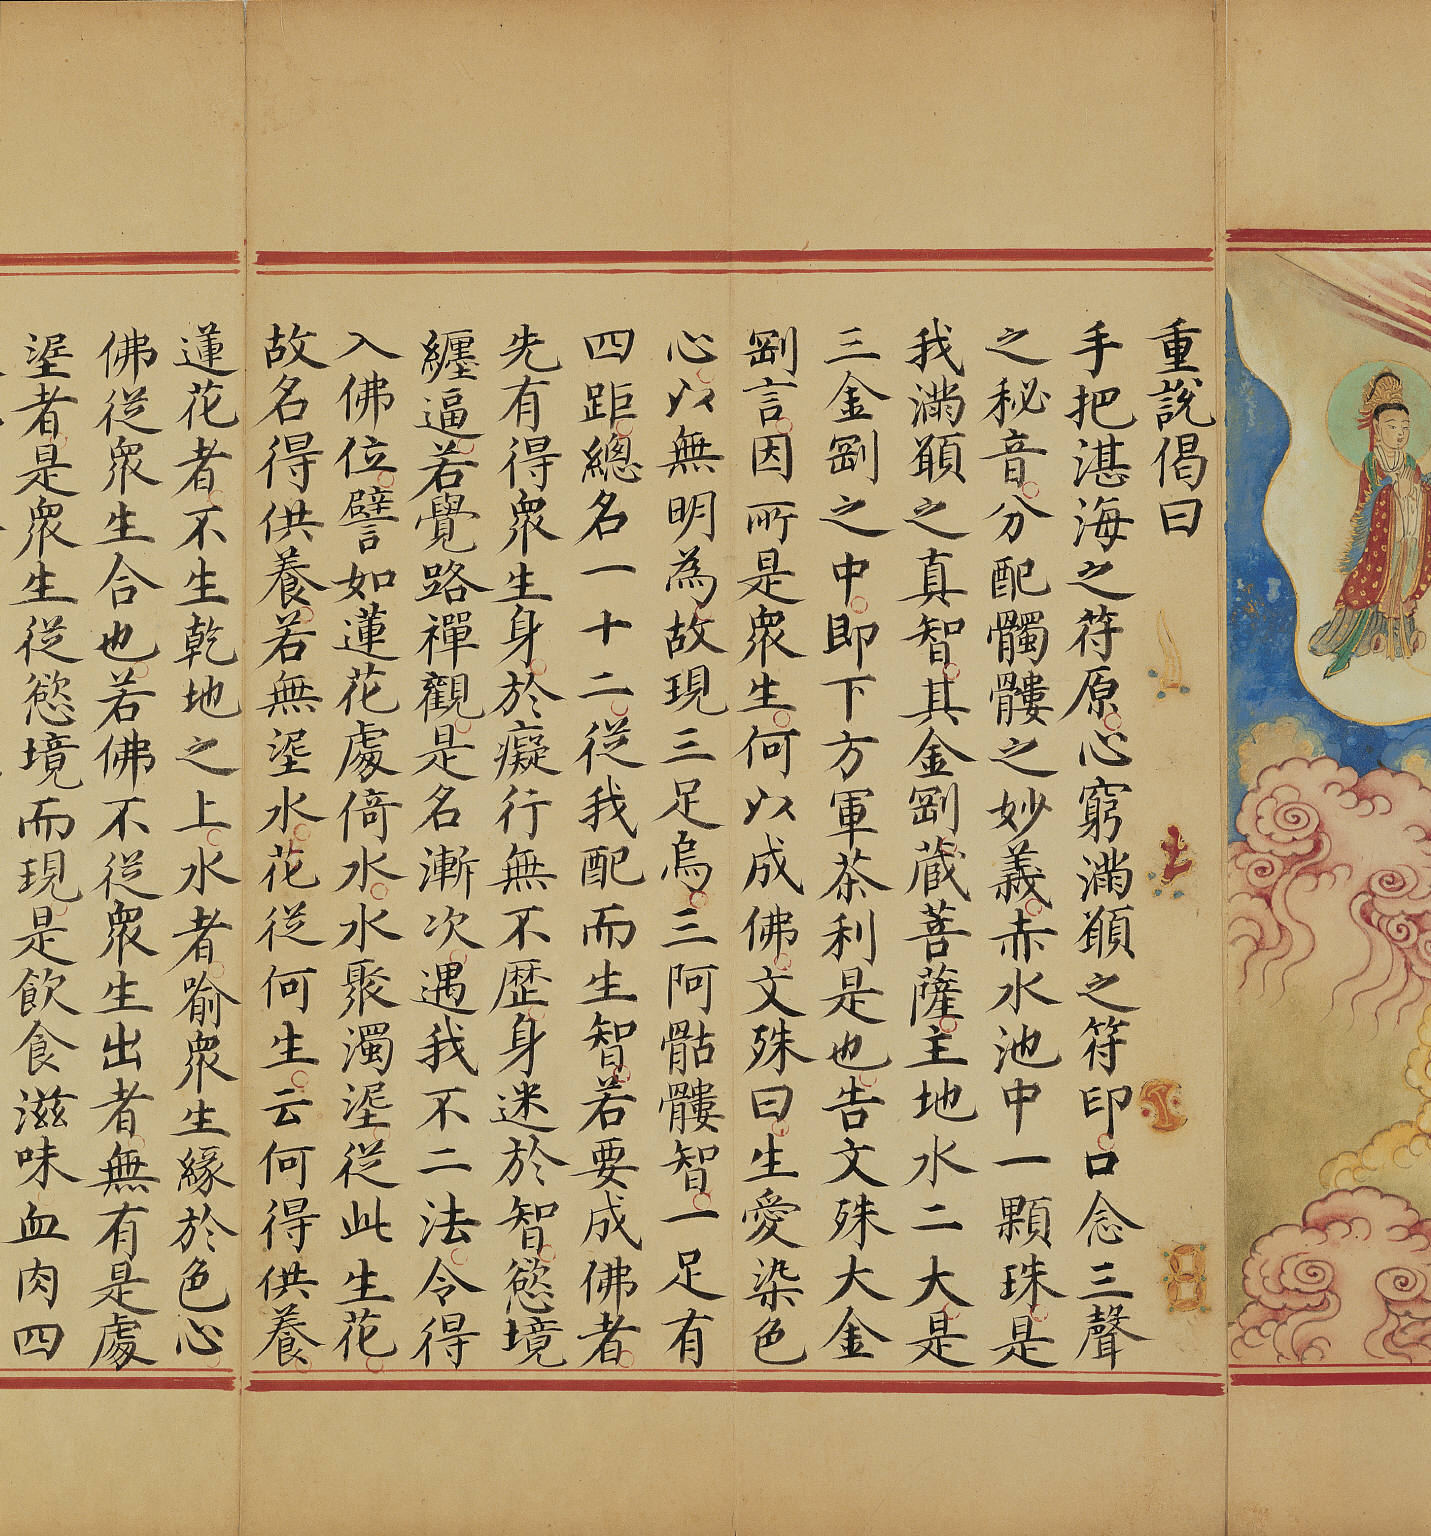 重說偈曰
手把湛海之符原心窮滿願之符印口念三聲
之秘音分配髑髏之妙義赤水池中一顆珠是
我滿願之真智其金剛藏菩薩主地水二大是
三金剛之中即下方軍荼利是也告文殊大金
剛言因而是眾生何以成佛文殊曰生愛染色
心以無明為故現三足烏三阿骷髏智一足有
四距總名一十二從我配而生智若要成佛者
先有得眾生身於癡行無不歷身迷於智慾境
纏逼若覺路禪觀是名漸次遇我不二法令得
入佛位譬如蓮花處倚水水聚濁埿從此生花
故名得供養若無埿水花從何生云何得供養
蓮花者不生乾地之上水者喻眾生緣於色心
佛從眾生合也若佛不從眾生出者無有是處
埿者是眾生從慾境而現是飲食滋味血肉四